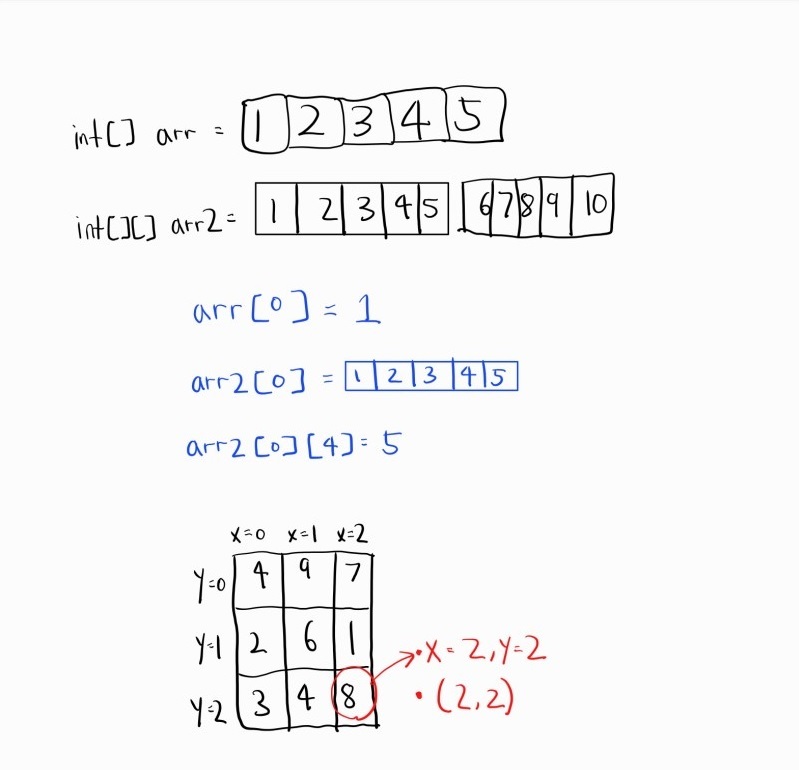 int[] arr = 1 2 3 4 5
int[][] arr2= 1 2 3 4 5 6 7 8 9 10
arr[0] = 1
arr2[0] = 1 2 3 4 5
arr2[0][4]= 5
x=0 x=1 x=2
Y=0 4 9 7
Y=1 2 6 1
Y=2 3 4 8
•X=2,Y=2
•(2,2)